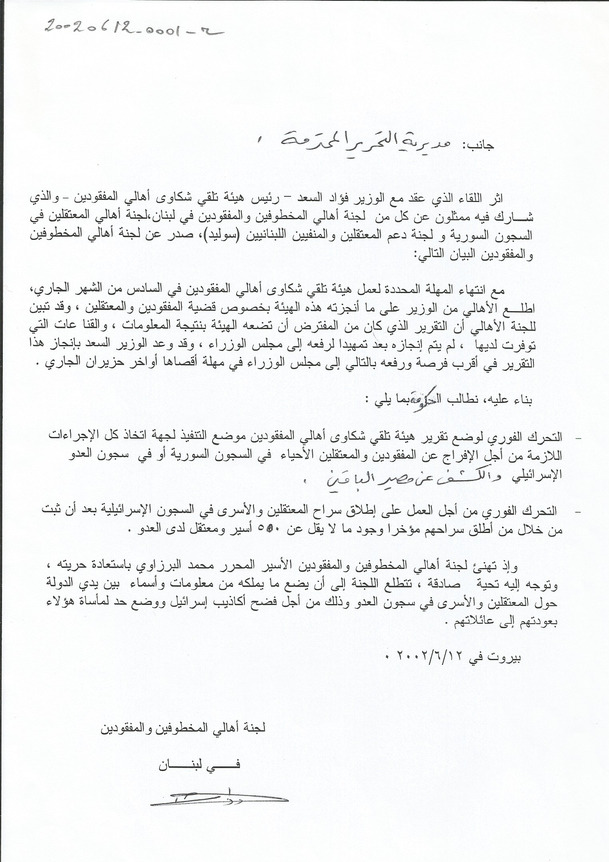 20020612-0001-2
جانب: مديرية التحرير المحترمة ،
اثر اللقاء الذي عقد مع الوزير فؤاد السعد – رئيس هيئة تلقي شكاوى أهالي المفقودين - والذي
شــارك فيه ممثلون عن كل من لجنة أهالي المخطوفين والمفقودين في لبنان،لجنة أهالي المعتقلين في
السجون السورية و لجنة دعم المعتقلين والمنفيين اللبنانيين (سوليد)، صدر عن لجنة أهالي المخطوفين
والمفقودين البيان التالي:
مع انتهاء المهلة المحددة لعمل هيئة تلقي شكاوى أهالي المفقودين في السادس من الشهر الجاري،
اطلــع الأهالي من الوزير على ما أنجزته هذه الهيئة بخصوص قضية المفقودين والمعتقلين ، وقد تبين
للجنة الأهالي أن التقرير الذي كان من المفترض أن تضعه الهيئة بنتيجة المعلومات ، والقنا عات التي
توفرت لديها ، لم يتم إنجازه بعد تمهيدا لرفعه إلى مجلس الوزراء ، وقد وعد الوزير السعد بإنجاز هذا
التقرير في أقرب فرصة ورفعه بالتالي إلى مجلس الوزراء في مهلة أقصاها أواخر حزيران الجاري .
بناء عليه، نطالب الحكومة بما يلي :
- التحرك الفوري لوضع تقرير هيئة تلقي شكاوى أهالي المفقودين موضع التنفيذ لجهة اتخاذ كل الإجراءات
اللازمة من أجل الإفراج عن المفقودين والمعتقلين الأحياء في السجون السورية أو في سجون العدو
الإسرائيلي والكشف عن مصير الباقين .
- التحرك الفوري من أجل العمل على إطلاق سراح المعتقلين والأسرى في السجون الإسرائيلية بعد أن ثبت
من خلال من أطلق سراحهم مؤخرا وجود ما لا يقل عن ٥٥٠ أسير ومعتقل لدى العدو .
وإذ تهنئ لجنة أهالي المخطوفين والمفقودين الأسير المحرر محمد البرزاوي باستعادة حريته ،
وتوجه إليه تحية صادقة ، تتطلع اللجنة إلى أن يضع ما يملكه من معلومات وأسماء بين يدي الدولة
حول المعتقلين والأسرى في سجون العدو وذلك من أجل فضح أكاذيب إسرائيل ووضع حد لمأساة هؤلاء
بعودتهم إلى عائلاتهم .
بيروت في ٢٠٠٢/٦/١٢ .
لجنة أهالي المخطوفين والمفقودين
فــي لبنــان